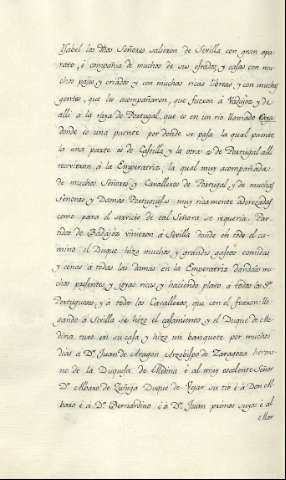 Ysabel los dhos Señores salieron de Sevilla con gran apa-
rato, é compañia de muchos de sus criados, y casas con mu-
chos pajes, y criados y con muchas ricas libreas, y con mucha
gente, que los acompañaron, que fueron á Badajoz y de
alli á la raya de Portugal, que es en un rio llamado
donde ai una puente por donde se pasa la qual puente
la una parte es de Castilla y la otra de Portugal alli
recivieron á la Emperatriz, la qual muy acompañada
de muchos Señores y Cavalleros de Portugal y de muchas
Señoras y Damas Portuguesas muy ricamente adrezadas
como para el servicio de tal Señora se requeria. Par-
tidos de Badajoz vinieron á Sevilla donde en todo el ca-
mino el Duque hizo muchos y grandes gastos comidas
y cenas á todas las damas de la Emperatriz dandoles mu-
chos presentes, y joyas ricas y haciendo plato á todos los Srs
Portugueses, y á todos los Cavalleros, que con el fueron. Lle-
gando á Sevilla se hizo el casamiento, y el Duque de Me-
dina tuvo en su casa, y hizo un banquete por muchos
dias á Dn Juan de Aragon Arzobispo de Zaragoza herma-
no de la Duquesa de Medina é al muy excelente Señor
D. Alvaro de Zuñiga Duque de Vejar su tio é á Don Al-
varo é á Dn Bernardino, é á Dn Juan primos suyos é al